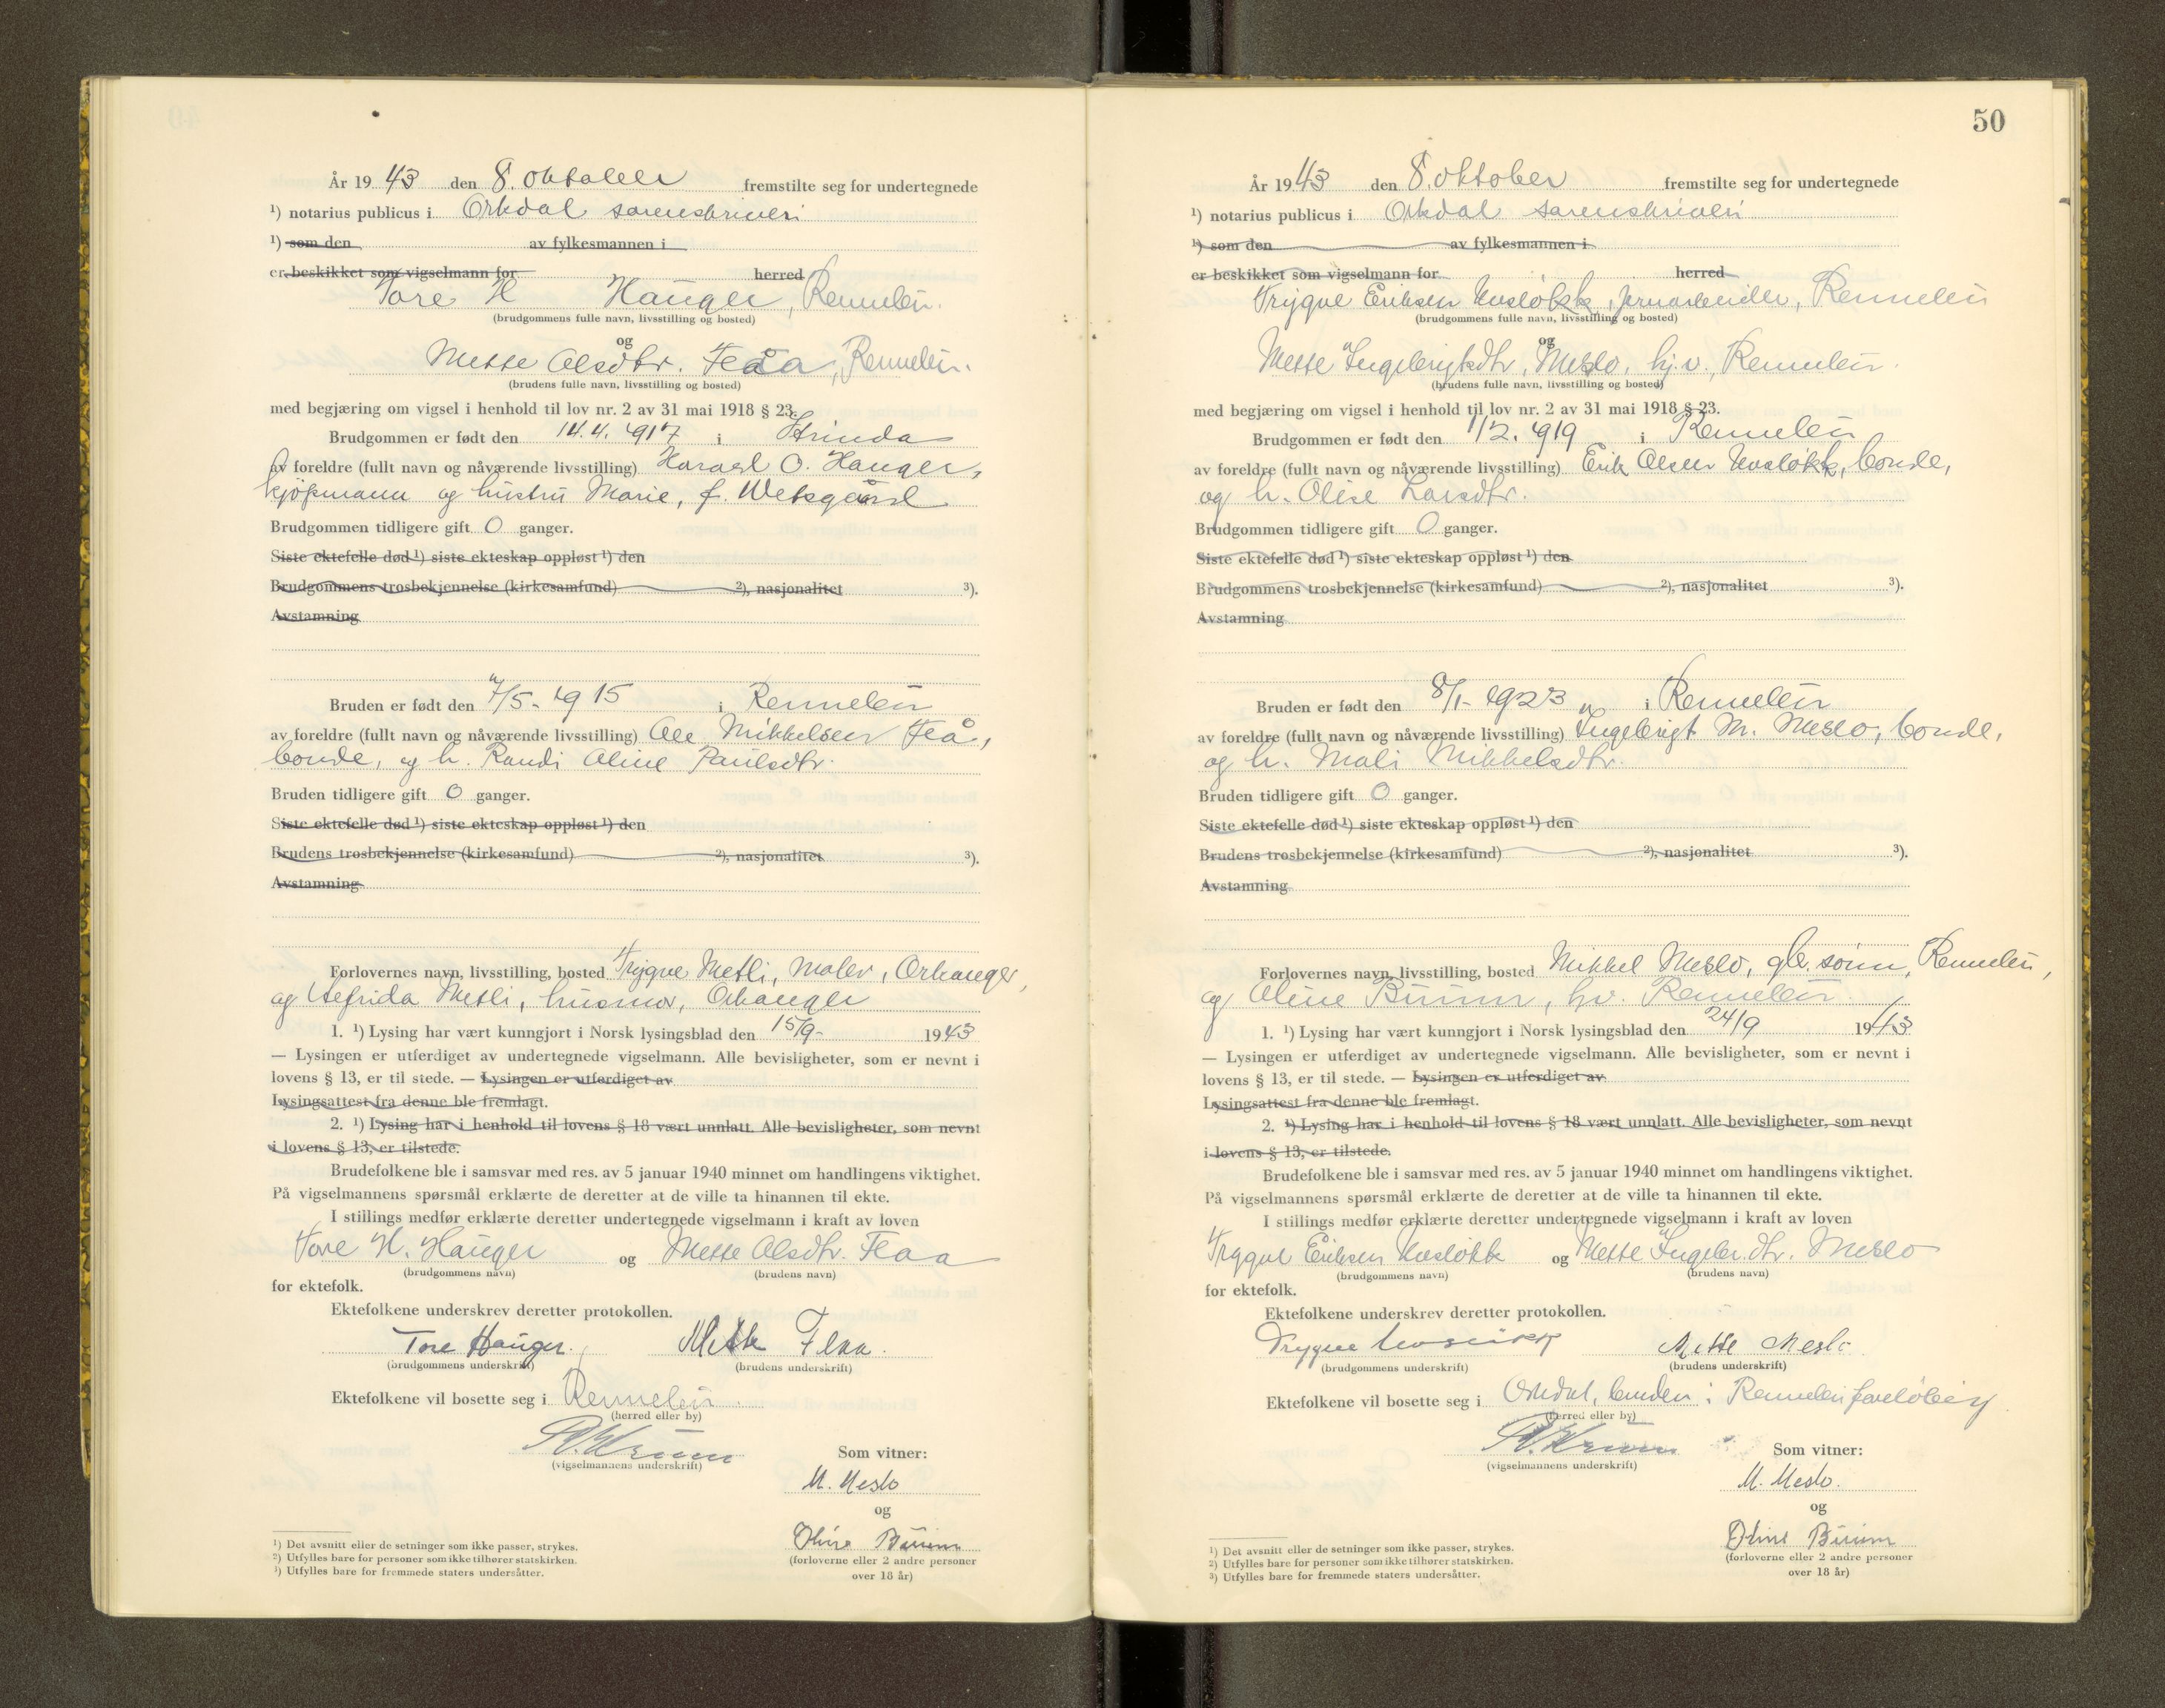 År 19 43 den 8. oktober fremstilte seg for undertegnede
¹) notarius publicus i Orkdal sorenskriveri
¹) som den av fylkesmannen i
er beskikket som vigselmann for herred
Tore H Hauger, Rennebu.
(brudgommens fulle navn, livsstilling og bosted)
og
Mette Olsdtr. Flaa, Rennebu.
(brudens fulle navn, livsstilling og bosted)
med begjæring om vigsel i henhold til lov nr. 2 av 31 mai 1918 § 23.
Brudgommen er født den 14.4.1917 i Strinda
av foreldre (fullt navn og nåværende livsstilling) Harald O. Hauger,
kjöpmann og hustru Marie, f. Wetsgård
Brudgommen tidligere gift 0 ganger.
Siste ektefelle død ¹) siste ekteskap oppløst ¹) den
Brudgommens trosbekjennelse (kirkesamfund) ²), nasjonalitet ³).
Avstamning
Bruden er født den 7/5-1915 i Rennebu
av foreldre (fullt navn og nåværende livsstilling) Ole Mikkelsen Flå,
bonde, og h. Randi Oline Paulsdtr.
Bruden tidligere gift 0 ganger.
Siste ektefelle død ¹) siste ekteskap oppløst ¹) den
Brudens trosbekjennelse (kirkesamfund) ²), nasjonalitet ³).
Avstamning
Forlovernes navn, livsstilling, bosted Trygve Metli, maler, Orkanger,
og Alfrida Metli, husmor, Orkanger
1. ¹) Lysing har vært kunngjort i Norsk lysingsblad den 15/9- 1943
— Lysingen er utferdiget av undertegnede vigselmann. Alle bevisligheter, som er nevnt i
lovens § 13, er til stede. — Lysingen er utferdiget av
Lysingsattest fra denne ble fremlagt.
2. ¹) Lysing har i henhold til lovens § 18 vært unnlatt. Alle bevisligheter, som nevnt
i lovens § 13, er tilstede.
Brudefolkene ble i samsvar med res. av 5 januar 1940 minnet om handlingens viktighet.
På vigselmannens spørsmål erklærte de deretter at de ville ta hinannen til ekte.
I stillings medfør erklærte deretter undertegnede vigselmann i kraft av loven
Tore H. Hauger og Mette Olsdtr. Flaa
(brudgommens navn) (brudens navn)
for ektefolk.
Ektefolkene underskrev deretter protokollen.
Tore Hauger. Mette Flaa.
(brudgommens underskrift) (brudens underskrift)
Ektefolkene vil bosette seg i Rennebu.
(herred eller by)
(vigselmannens underskrift)
Som vitner:
M. Meslo
og
Oline Buum
(forloverne eller 2 andre personer
over 18 år)
¹) Det avsnitt eller de setninger som ikke passer, strykes.
²) Utfylles bare for personer som ikke tilhører statskirken.
³) Utfylles bare for fremmede staters undersåtter.
50
År 1943 den 8. oktober fremstilte seg for undertegnede
¹) notarius publicus i Orkdal sorenskriveri
¹) som den av fylkesmannen i
er beskikket som vigselmann for herred
Trygve Eriksen Uvsløkk, jernarbeider, Rennebu
(brudgommens fulle navn, livsstilling og bosted)
og
Mette Ingebrigtsdtr. Meslo, hj.v., Rennebu.
(brudens fulle navn, livsstilling og bosted)
med begjæring om vigsel i henhold til lov nr. 2 av 31 mai 1918 § 23.
Brudgommen er født den 1/2. 1919 i Rennebu
av foreldre (fullt navn og nåværende livsstilling) Erik Olsen Uvsløkk, bonde,
og h. Olise Larsdtr.
Brudgommen tidligere gift 0 ganger.
Siste ektefelle død ¹) siste ekteskap oppløst ¹) den
Brudgommens trosbekjennelse (kirkesamfund) ²), nasjonalitet ³).
Avstamning
Bruden er født den 8/1-1923 i Rennebu
av foreldre (fullt navn og nåværende livsstilling) Ingebrigt M. Meslo, bonde,
og h. Mali Mikkelsdtr.
Bruden tidligere gift 0 ganger.
Siste ektefelle død ¹) siste ekteskap oppløst ¹) den
Brudens trosbekjennelse (kirkesamfund) ²), nasjonalitet ³).
Avstamning
Forlovernes navn, livsstilling, bosted Mikkel Meslo, gbr. sönn, Rennebu,
og Oline Buum, hv. Rennebu.
1. ¹) Lysing har vært kunngjort i Norsk lysingsblad den 24/9 1943
— Lysingen er utferdiget av undertegnede vigselmann. Alle bevisligheter, som er nevnt i
lovens § 13, er til stede. — Lysingen er utferdiget av
Lysingsattest fra denne ble fremlagt.
2. ¹) Lysing har i henhold til lovens § 18 vært unnlatt. Alle bevisligheter, som nevnt
i lovens § 13, er tilstede.
Brudefolkene ble i samsvar med res. av 5 januar 1940 minnet om handlingens viktighet.
På vigselmannens spørsmål erklærte de deretter at de ville ta hinannen til ekte.
I stillings medfør erklærte deretter undertegnede vigselmann i kraft av loven
Trygve Eriksen Uvsløkk og Mette Ingebr.dtr. Meslo
(brudgommens navn) (brudens navn)
for ektefolk.
Ektefolkene underskrev deretter protokollen.
Trygve Uvsløkk Mette Meslo
(brudgommens underskrift) (brudens underskrift)
Ektefolkene vil bosette seg i Orkdal, bruden i Rennebu foreløbig
(herred eller by)
(vigselmannens underskrift)
Som vitner:
M. Meslo.
og
Oline Buum
(forloverne eller 2 andre personer
over 18 år)
¹) Det avsnitt eller de setninger som ikke passer, strykes.
²) Utfylles bare for personer som ikke tilhører statskirken.
³) Utfylles bare for fremmede staters undersåtter.